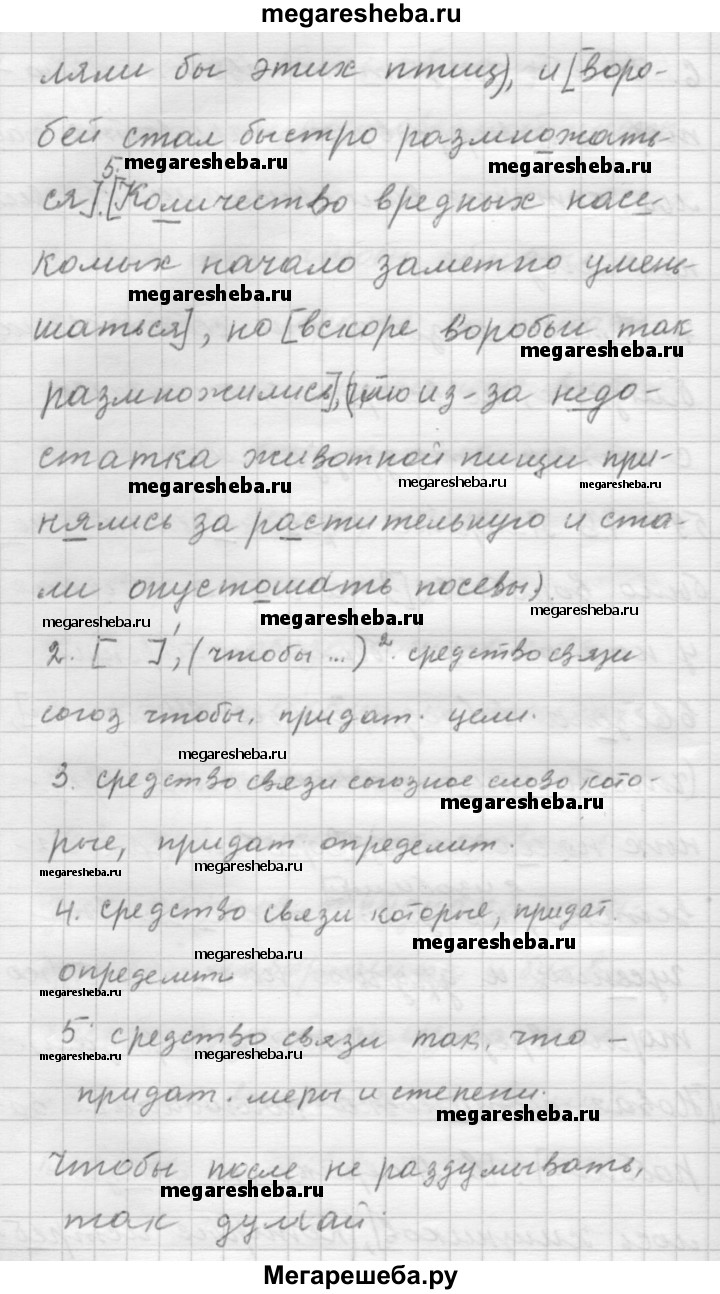 megaresheba.ru
ляли бы этих птиц), и [воро-
бей стал быстро размножать-
megaresheba.ru megaresheba.ru
ся]. 5. [Количество вредных насе-
комых начало заметно умень-
megaresheba.ru
шаться], но [вскоре воробьи так
megaresheba.ru
размножились], (что из-за недо-
статка животной пищи при-
megaresheba.ru megaresheba.ru megaresheba.ru
нялись за растительную и ста-
ли опустошать посевы).
megaresheba.ru megaresheba.ru megaresheba.ru
2. [ ], (чтобы ...) 2. средство связи
союз чтобы, придат. цели.
megaresheba.ru
3. средство связи союзное слово кото-
megaresheba.ru
рые, придат определит.
megaresheba.ru megaresheba.ru
4. средство связи которые, придат.
megaresheba.ru
определит
megaresheba.ru megaresheba.ru
5 средство связи так, что –
megaresheba.ru megaresheba.ru
придат. меры и степени.
megaresheba.ru
Чтобы после не раздумывать,
megaresheba.ru
так думай.
megaresheba.ru megaresheba.ru
Мегарешеба.ру